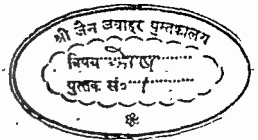 श्री जैन जवाहर पुस्तकालय
विषय
पुस्तक सं०